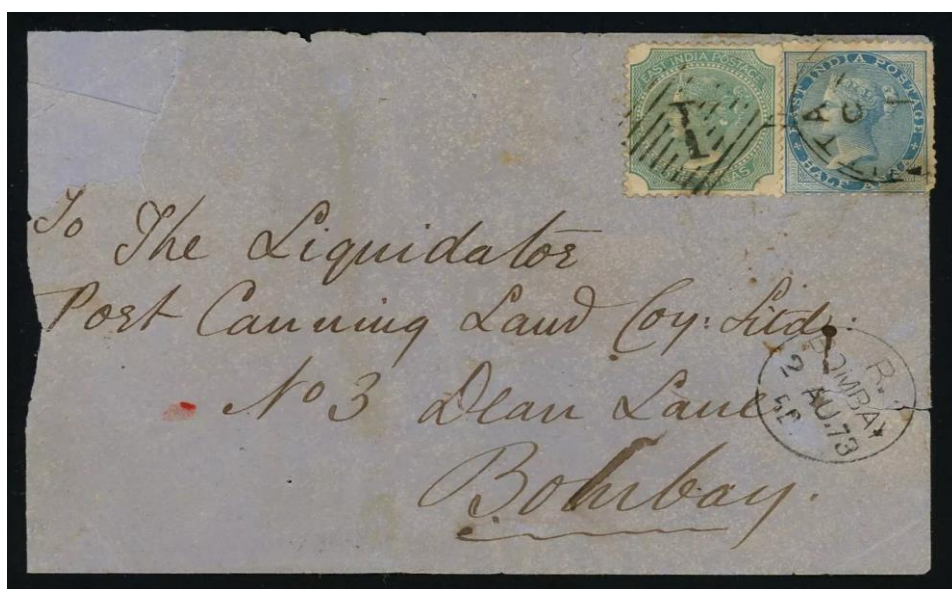 EAST INDIA POSTAGE
1
EAST INDIA POSTAGE
HALF ANNA
To The Liquidator
Port Canning Land Coy: Litd:
No 3 Dean Lane
Bombay.
R.
BOMBAY
2 AU.73